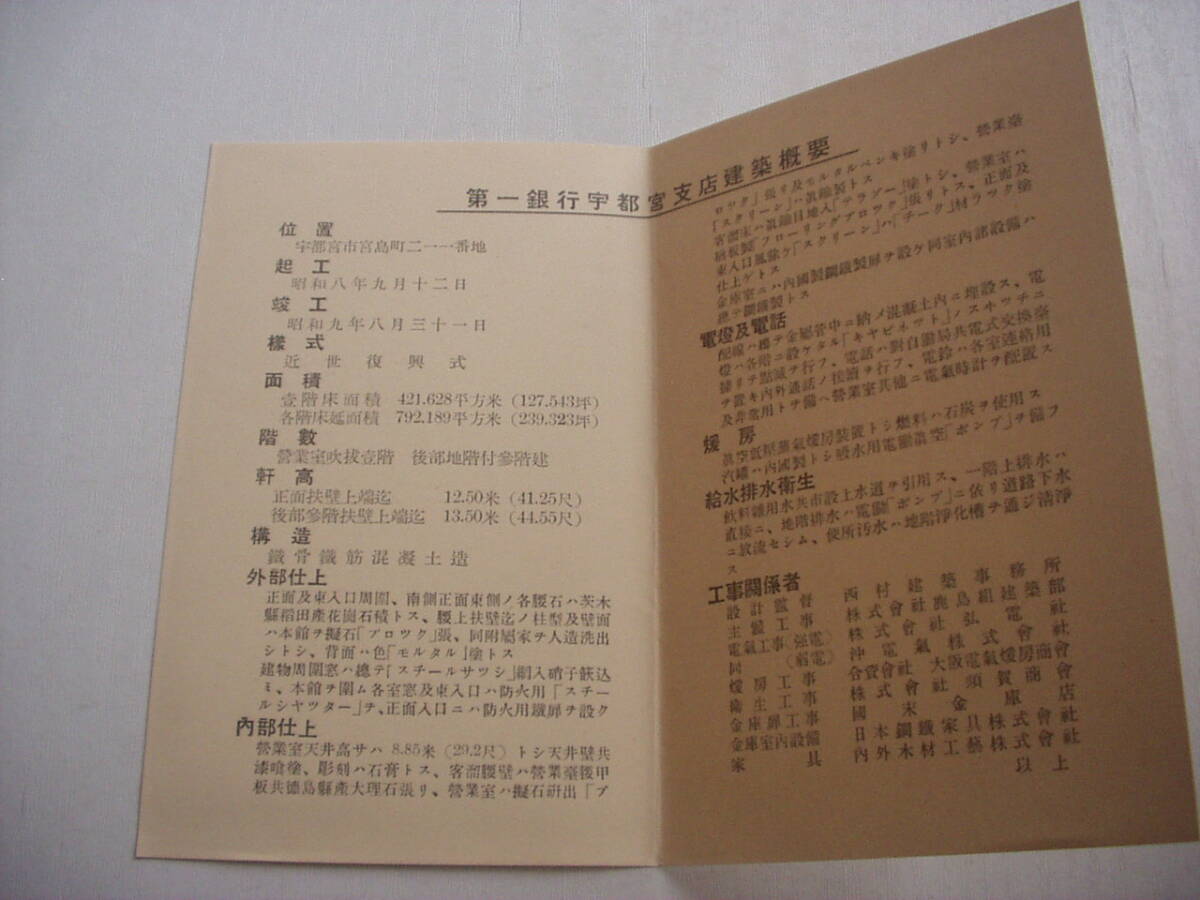 第一銀行宇都宮支店建築概要
位置
宇都宮市宮島町二一一番地
起工
昭和八年九月十二日
竣工
昭和九年八月三十一日
樣式
近世復興式
面積
壹階床面積 421.628平方米(127.543坪)
各階床延面積 792.189平方米(239.323坪)
階數
營業室吹拔壹階 後部地階付參階建
軒高
正面扶壁上端迄 12.50米(41.25尺)
後部參階扶壁上端迄 13.50米(44.55尺)
構造
鐵骨鐵筋混凝土造
外部仕上
正面及東入口周圍、南側正面東側ノ各腰石ハ茨木
縣稻田產花崗石積トス、腰上扶壁迄ノ柱型及壁面
ハ本館ヲ擬石「ブロツク」張、同附屬家ヲ人造洗出
シトシ、背面ハ色「モルタル」塗トス
建物周圍窓ハ總テ「スチールサツシ」網入硝子篏込
ミ、本館ヲ圍ム各室窓及東入口ハ防火用「スチー
ルシヤツター」ヲ、正面入口ニハ防火用鐵扉ヲ設ク
內部仕上
營業室天井高サハ 8.85米(29.2尺)トシ天井壁共
漆喰塗、彫刻ハ石膏トス、客溜腰壁ハ營業臺腰甲
板共德島縣產大理石張リ、營業室ハ擬石硏出「ブ
ロツク」張リ及モルタルペンキ塗リトシ、營業臺
「スクリーン」ハ眞鍮製トス
客溜床ハ眞鍮目地入「テラゾー」塗トシ、營業室ハ
楢板製「フローリングブロツク」張リトス、正面及
東入口風除ケ「スクリーン」ハ「チーク」材ラツク塗
仕上ゲトス
金庫室ニハ內國製鋼鐵製扉ヲ設ケ同室內諸設備ハ
總テ鋼鐵製トス
電燈及電話
配線ハ總テ金屬管中ニ納メ混凝土內ニ埋設ス、電
燈ハ各階ニ設ケタル「キヤビネツト」ノスヰツチニ
據リテ點滅ヲ行フ、電話ハ對自働局共電式交換臺
ヲ置キ內外通話ノ接續ヲ行フ、電鈴ハ各室連絡用
及非常用トヲ備ヘ營業室其他ニ電氣時計ヲ配置ス
煖房
眞空低壓蒸氣煖房裝置トシ燃料ハ石炭ヲ使用ス
汽罐ハ內國製トシ吸水用電動眞空「ポンプ」ヲ備フ
給水排水衛生
飲料雜用水共市設上水道ヲ引用ス、一階上排水ハ
直接ニ、地階排水ハ電動「ポンプ」ニ依リ道路下水
ニ放流セシム、便所汚水ハ地階淨化槽ヲ通ジ淸淨
ス
工事關係者
設計監督 西村建築事務所
主體工事 株式會社鹿島組建築部
電氣工事(强電) 株式會社弘電社
同(弱電) 沖電氣株式會社
煖房工事 合資會社大阪電氣煖房商會
衛生工事 株式會社須賀商會
金庫扉工事 國末金庫店
金庫室內設備 日本鋼鐵家具株式會社
家具 內外木材工藝株式會社
以上